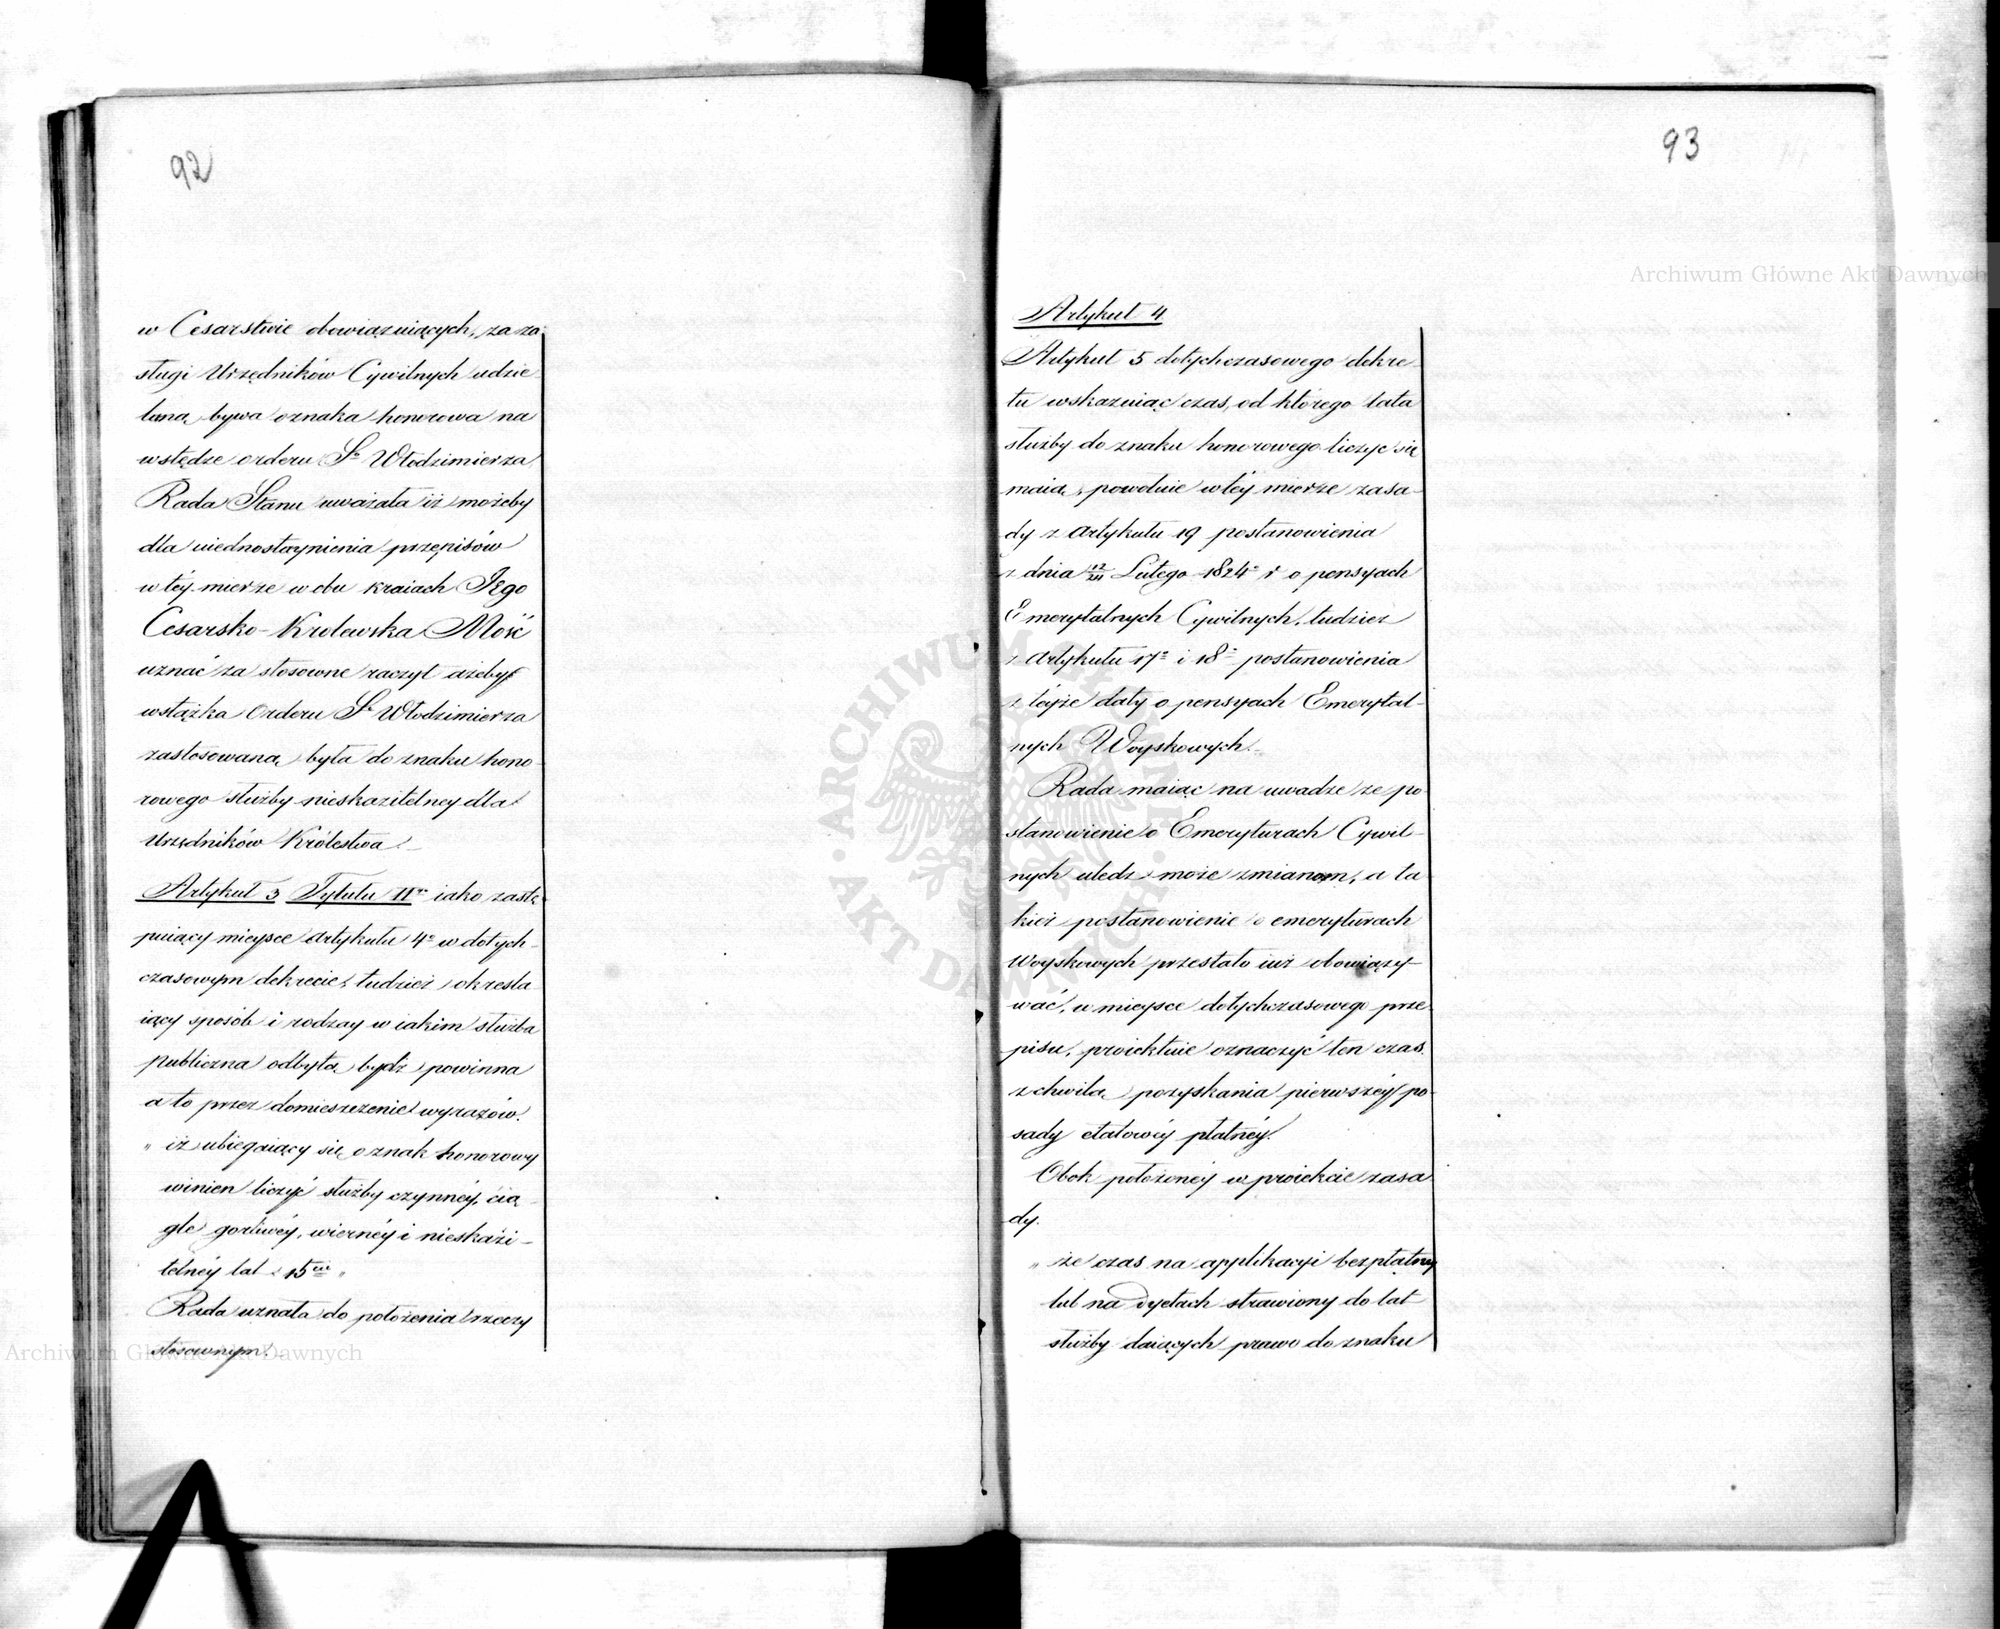 92
w Cesarstwie obowiązuiących, za za-
sługi Urzędników Cywilnych udzie-
laną bywa oznaka honorowa na
wstędze orderu Sgo Włodzimierza,
Rada Stanu uważała iż możeby
dla uiednostaynienia przepisów
w téy mierze w obu kraiach Jego
Cesarsko-Królewska Mość
uznać za stosowne raczył ażeby
wstążka Orderu Sgo Włodzimierza
zastosowaną była do znaku hono-
rowego służby nieskazitelney dla
Urzędników Królestwa.
Artykuł 3 Tytułu IIgo iako zastę-
puiący mieysce Artykułu 4o w dotych-
czasowym dekrecie, tudzież określa-
iący sposób i rodzay w iakim służba
publiczna odbytą bydź powinna
a to przez domieszczenie wyrazów.
„ iż ubiegaiący się o znak honorowy
winien liczyć służby czynnéy, cią-
głe gorliwéy, wiernéy i nieskazi-
telnéy lat 15cie „
Rada uznała do położenia rzeczy
stosownym.
93
Artykuł 4
Artykuł 5 dotychczasowego dekre-
tu wskazuiąc czas, od którego lata
służby do znaku honorowego liczyć się
maią, powołuie w téy mierze zasa-
dy z Artykułu 19 postanowienia
z dnia 12/24 Lutego 1824o r o pensyach
Emerytalnych Cywilnych, tudzież
z Artykułu 17o i 18o postanowienia
z téyże daty o pensyach Emerytal-
nych Woyskowych.
Rada maiąc na uwadze że po-
stanowienie o Emeryturach Cywil-
nych uledz może zmianom, a ta-
kież postanowienie o emeryturach
Woyskowych przestało iuż obowiązy-
wać, w mieysce dotychczasowego prze-
pisu, proiektuie oznaczyć ten czas
z chwilą pozyskania pierwszéy po-
sady etatowéy płatnéy.
Obok położonéy w proiekcie zasa-
dy.
„ że czas na applikacyi bezpłatnéy
lub na dyetach strawiony do lat
służby daiących prawo do znaku